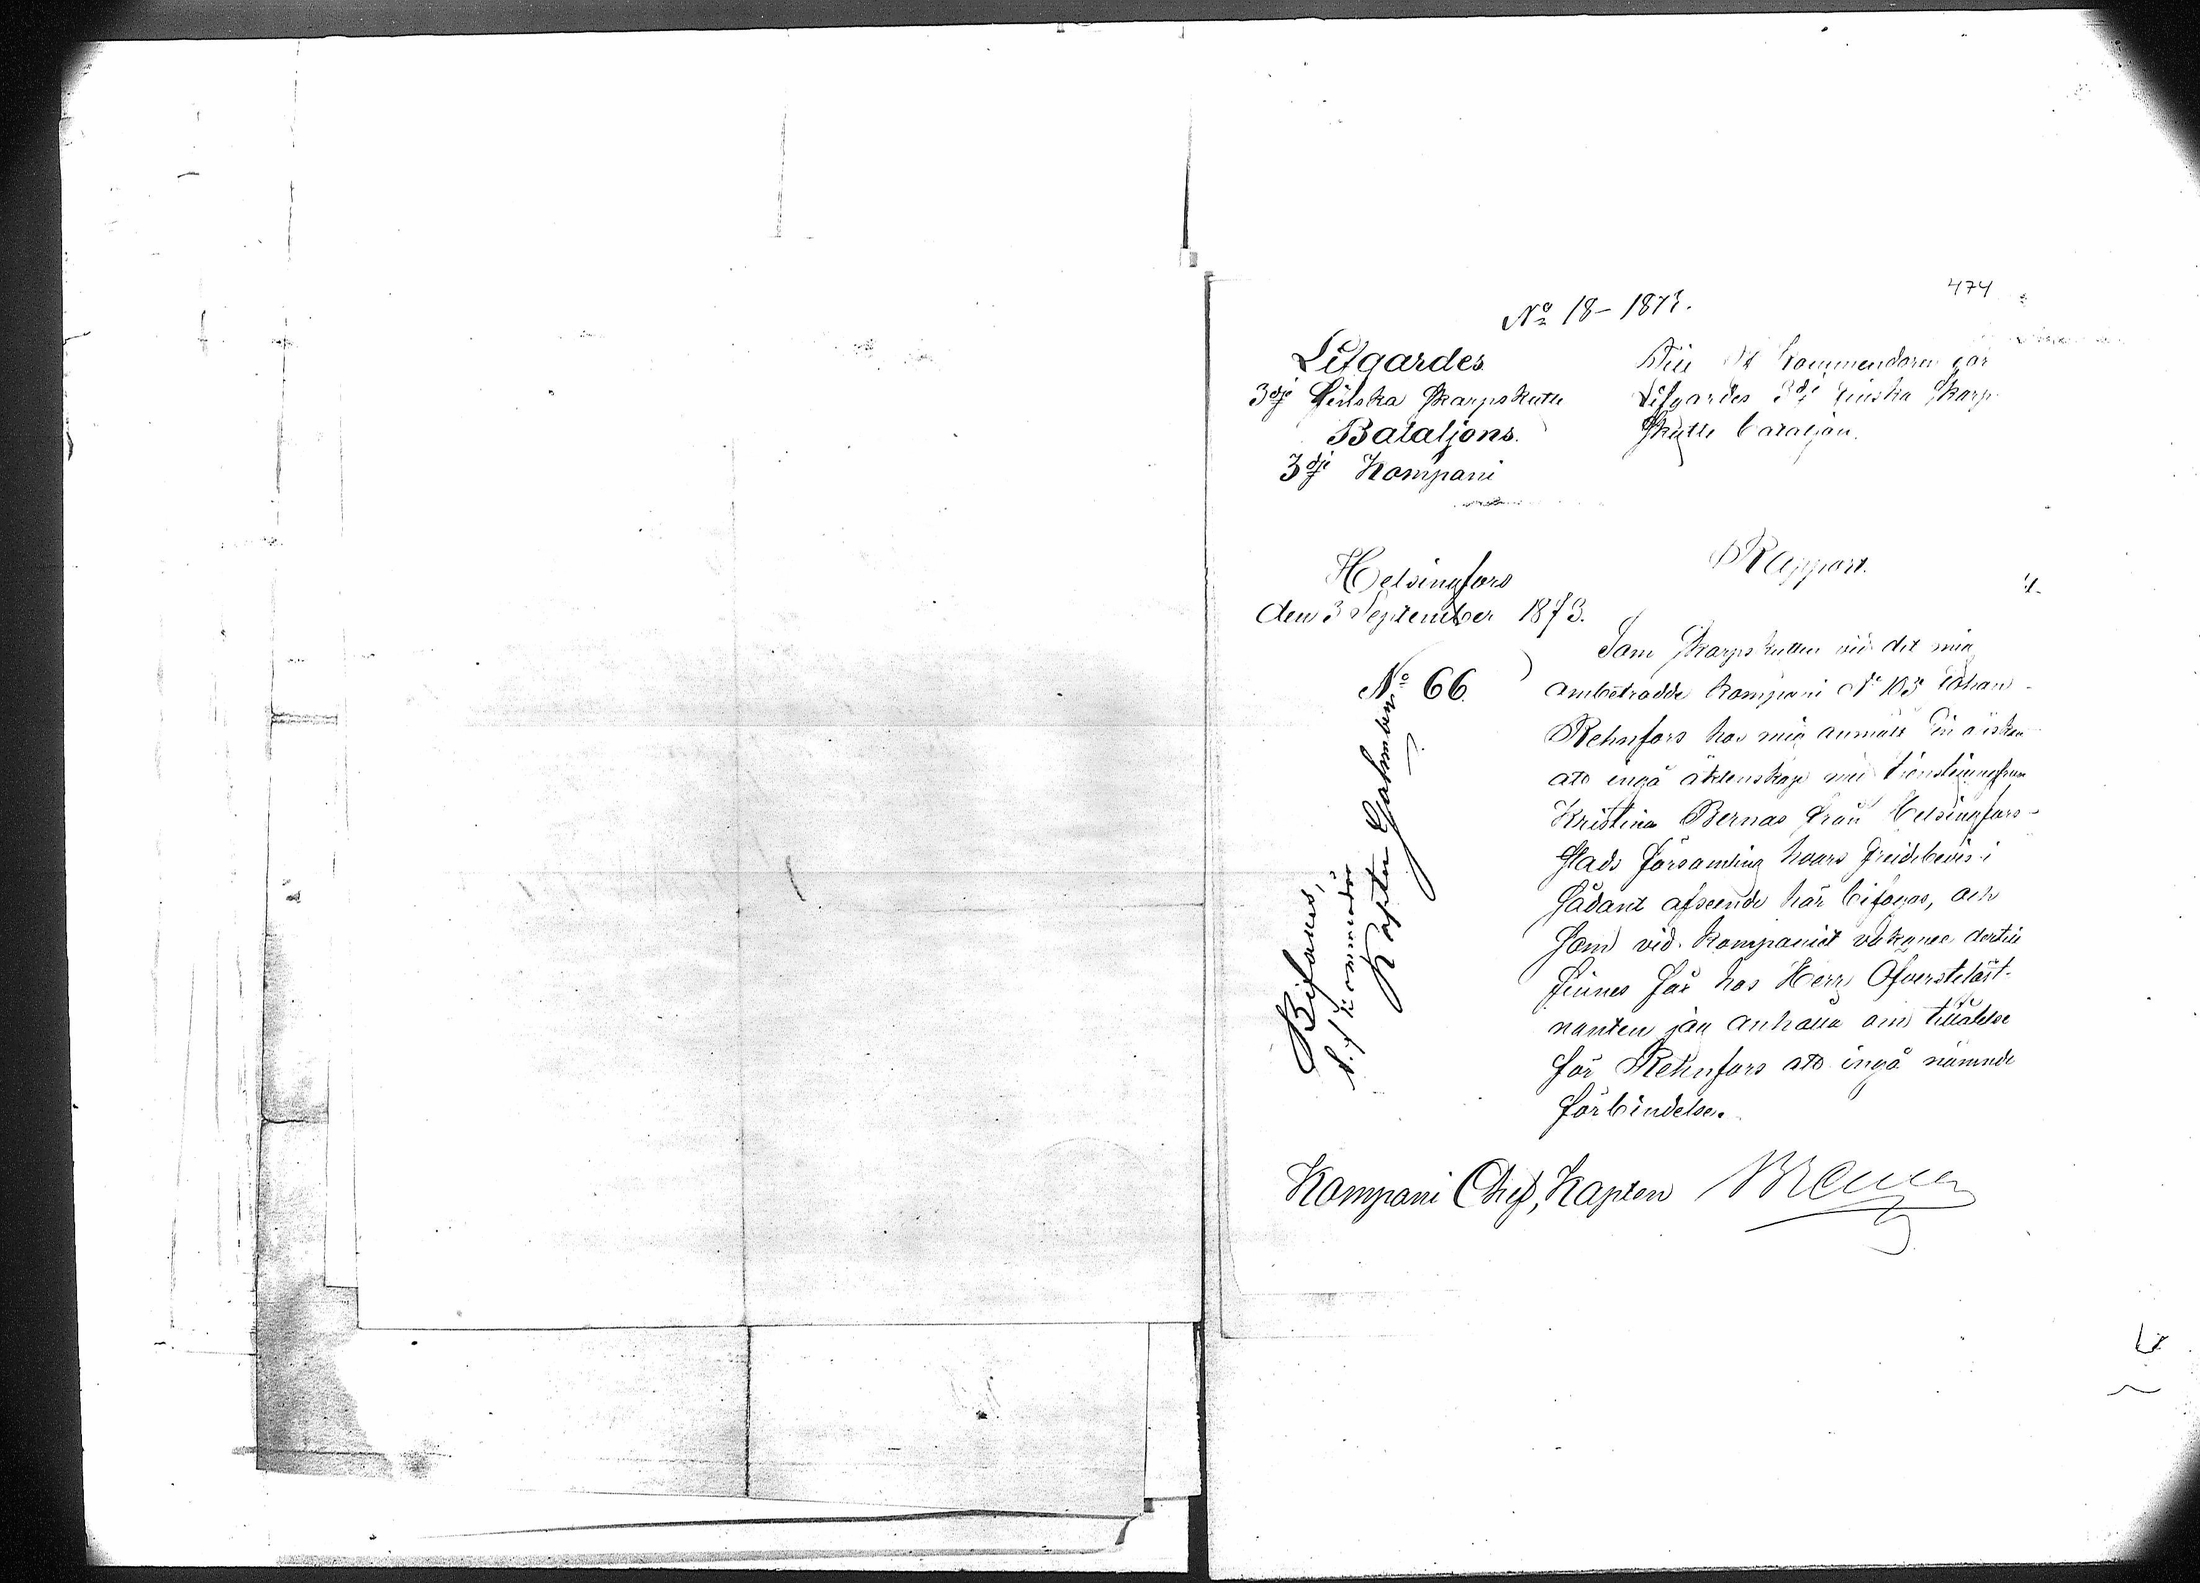 474
No 18-1873.
Lifgardes
3dje Finska Skarpskytte
Bataljons.
3dje Kompani
Till Kommendören för
Lifgardes 3dje Finska Skarp-
skytte bataljon.
Helsingfors
den 3 September 1873.
No 66.
Rapport.
Som Skarpskytten vid det mig
ambetrodde kompani No 103 Johan
Rehnfors hos mig anmält sin åstun
att ingå äktenskap med tjensteqvinnan
Kristina Bernas från Helsingfors
stads församling hvars frejdebevis i
sådant afseende här bifogas, och
som vid kompaniet vakance dertill
finnes får hos Herr Öfverstelöjt-
nanten jag anhålla om tillåtelse
för Rehnfors att ingå nämnde
förbindelse.
Kompani Chef, Kapten
Bifalles,
t.f. Kommendör
Kapten